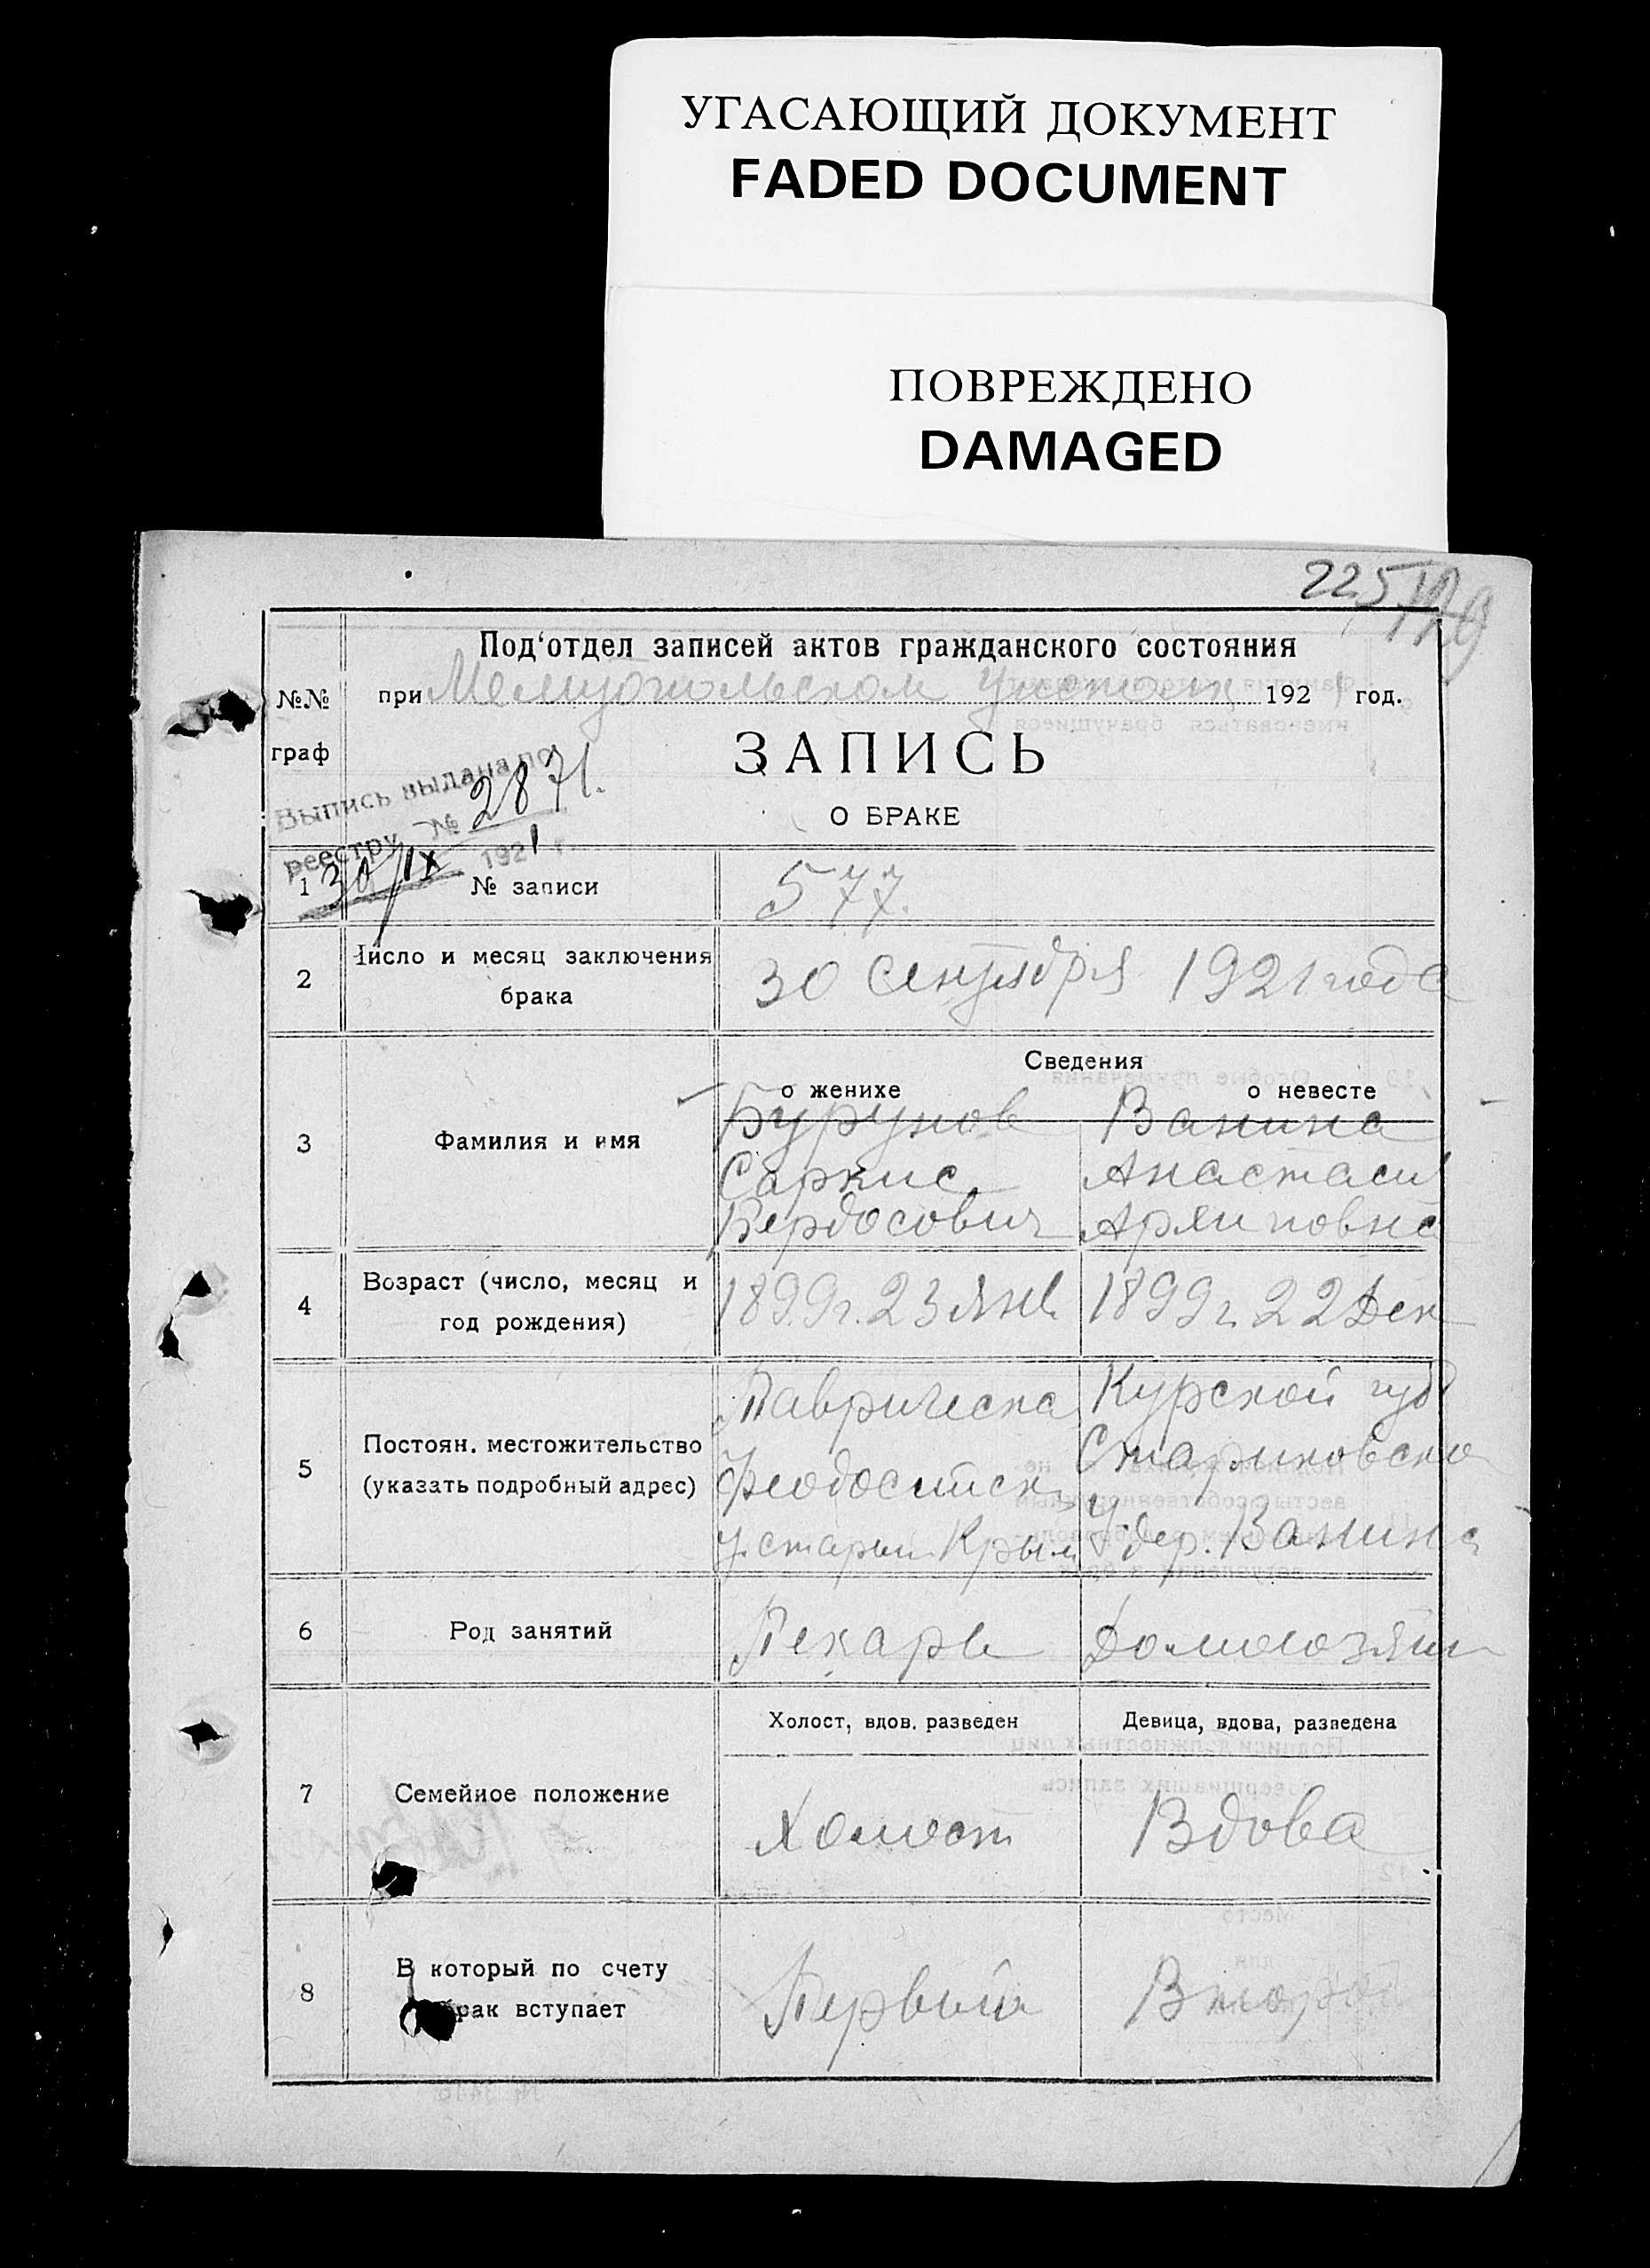 УГАСАЮЩИЙ ДОКУМЕНТ
FADED DOCUMENT
ПОВРЕЖДЕНО
DAMAGED
225
№№
граф
Под‘отдел записей актов гражданского состояния
при Мелитопольском 1921 год.
ЗАПИСЬ
О БРАКЕ
Выпись выдана по
реестру № 2871.
30/IX 1921 г.
1 № записи 577.
2 Число и месяц заключения
брака
30 Сентября 1921 года
Сведения
о женихе о невесте
3 Фамилия и имя
Бурунов Ванина
Саркис Анастаси
Бердосович Архиповна
4 Возраст (число, месяц и
год рождения)
1899г. 23 Янв. 1899г. 22 Дек
5 Постоян. местожительство
(указать подробный адрес)
Таврическа Курской губ
Феодосийск
старый Крым У. дер. Ванина
6 Род занятий Пекарь
Холост, вдов. разведен Девица, вдова, разведена
7 Семейное положение Холост Вдова
8 В который по счету
брак вступает
Первый Второй